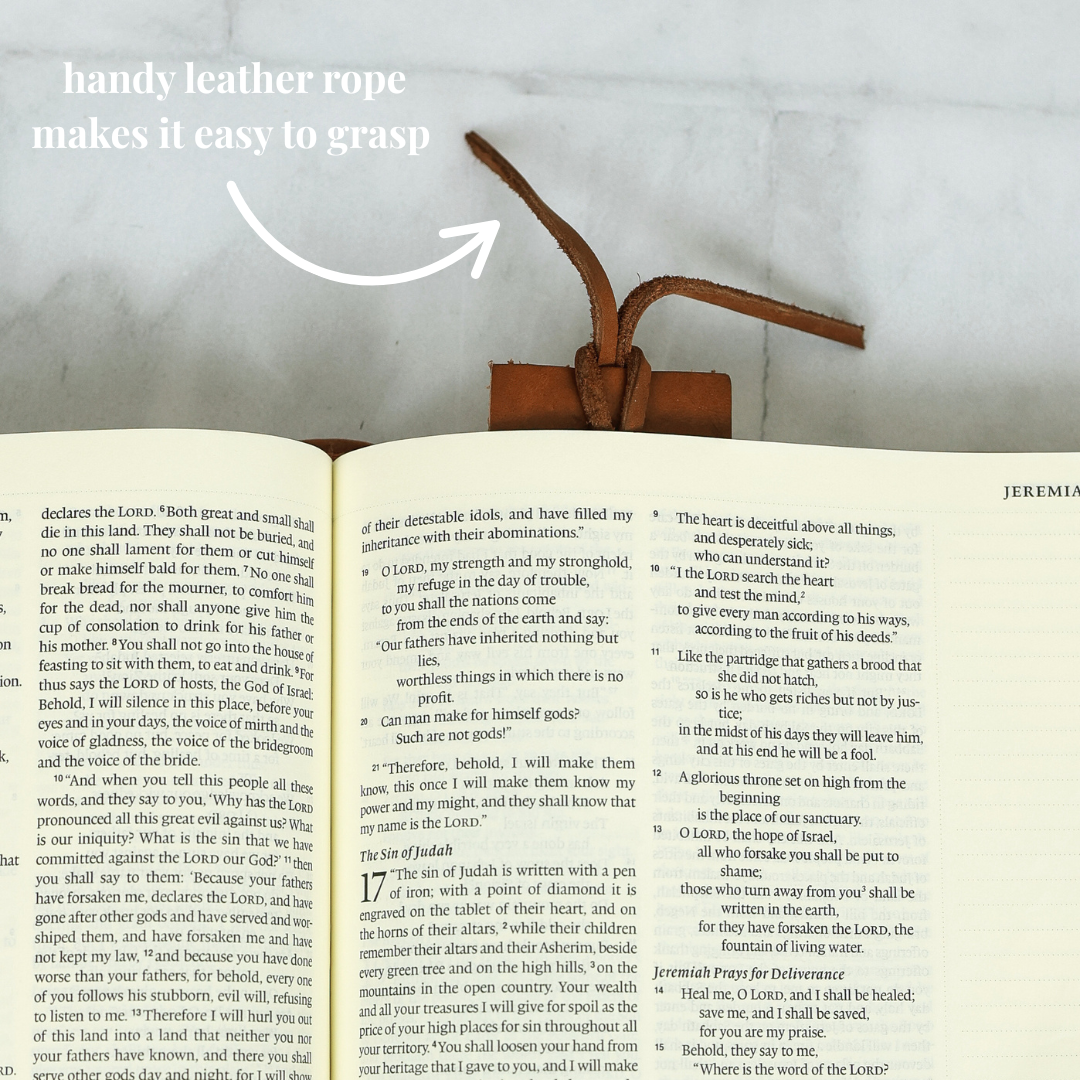 handy leather rope
makes it easy to grasp
JEREMIA
m,
s,
on
tion.
k,
hat
RD.
declares the LORD. 6 Both great and small shall
die in this land. They shall not be buried, and
no one shall lament for them or cut himself
or make himself bald for them. 7 No one shall
break bread for the mourner, to comfort him
for the dead, nor shall anyone give him the
cup of consolation to drink for his father or
his mother. 8 You shall not go into the house of
feasting to sit with them, to eat and drink. 9 For
thus says the LORD of hosts, the God of Israel:
Behold, I will silence in this place, before your
eyes and in your days, the voice of mirth and the
voice of gladness, the voice of the bridegroom
and the voice of the bride.
10 “And when you tell this people all these
words, and they say to you, ‘Why has the LORD
pronounced all this great evil against us? What
is our iniquity? What is the sin that we have
committed against the LORD our God?’ 11 then
you shall say to them: ‘Because your fathers
have forsaken me, declares the LORD, and have
gone after other gods and have served and wor-
shiped them, and have forsaken me and have
not kept my law, 12 and because you have done
worse than your fathers, for behold, every one
of you follows his stubborn, evil will, refusing
to listen to me. 13 Therefore I will hurl you out
of this land into a land that neither you nor
your fathers have known, and there you shall
serve other gods day and night, for I will show
of their detestable idols, and have filled my
inheritance with their abominations.”
19 O LORD, my strength and my stronghold,
my refuge in the day of trouble,
to you shall the nations come
from the ends of the earth and say:
“Our fathers have inherited nothing but
lies,
worthless things in which there is no
profit.
20 Can man make for himself gods?
Such are not gods!”
21 “Therefore, behold, I will make them
know, this once I will make them know my
power and my might, and they shall know that
my name is the LORD.”
The Sin of Judah
17 “The sin of Judah is written with a pen
of iron; with a point of diamond it is
engraved on the tablet of their heart, and on
the horns of their altars, 2 while their children
remember their altars and their Asherim, beside
every green tree and on the high hills, 3 on the
mountains in the open country. Your wealth
and all your treasures I will give for spoil as the
price of your high places for sin throughout all
your territory. 4 You shall loosen your hand from
your heritage that I gave to you, and I will make
9 The heart is deceitful above all things,
and desperately sick;
who can understand it?
10 “I the LORD search the heart
and test the mind,2
to give every man according to his ways,
according to the fruit of his deeds.”
11 Like the partridge that gathers a brood that
she did not hatch,
so is he who gets riches but not by jus-
tice;
in the midst of his days they will leave him,
and at his end he will be a fool.
12 A glorious throne set on high from the
beginning
is the place of our sanctuary.
13 O LORD, the hope of Israel,
all who forsake you shall be put to
shame;
those who turn away from you3 shall be
written in the earth,
for they have forsaken the LORD, the
fountain of living water.
Jeremiah Prays for Deliverance
14 Heal me, O LORD, and I shall be healed;
save me, and I shall be saved,
for you are my praise.
15 Behold, they say to me,
“Where is the word of the LORD?